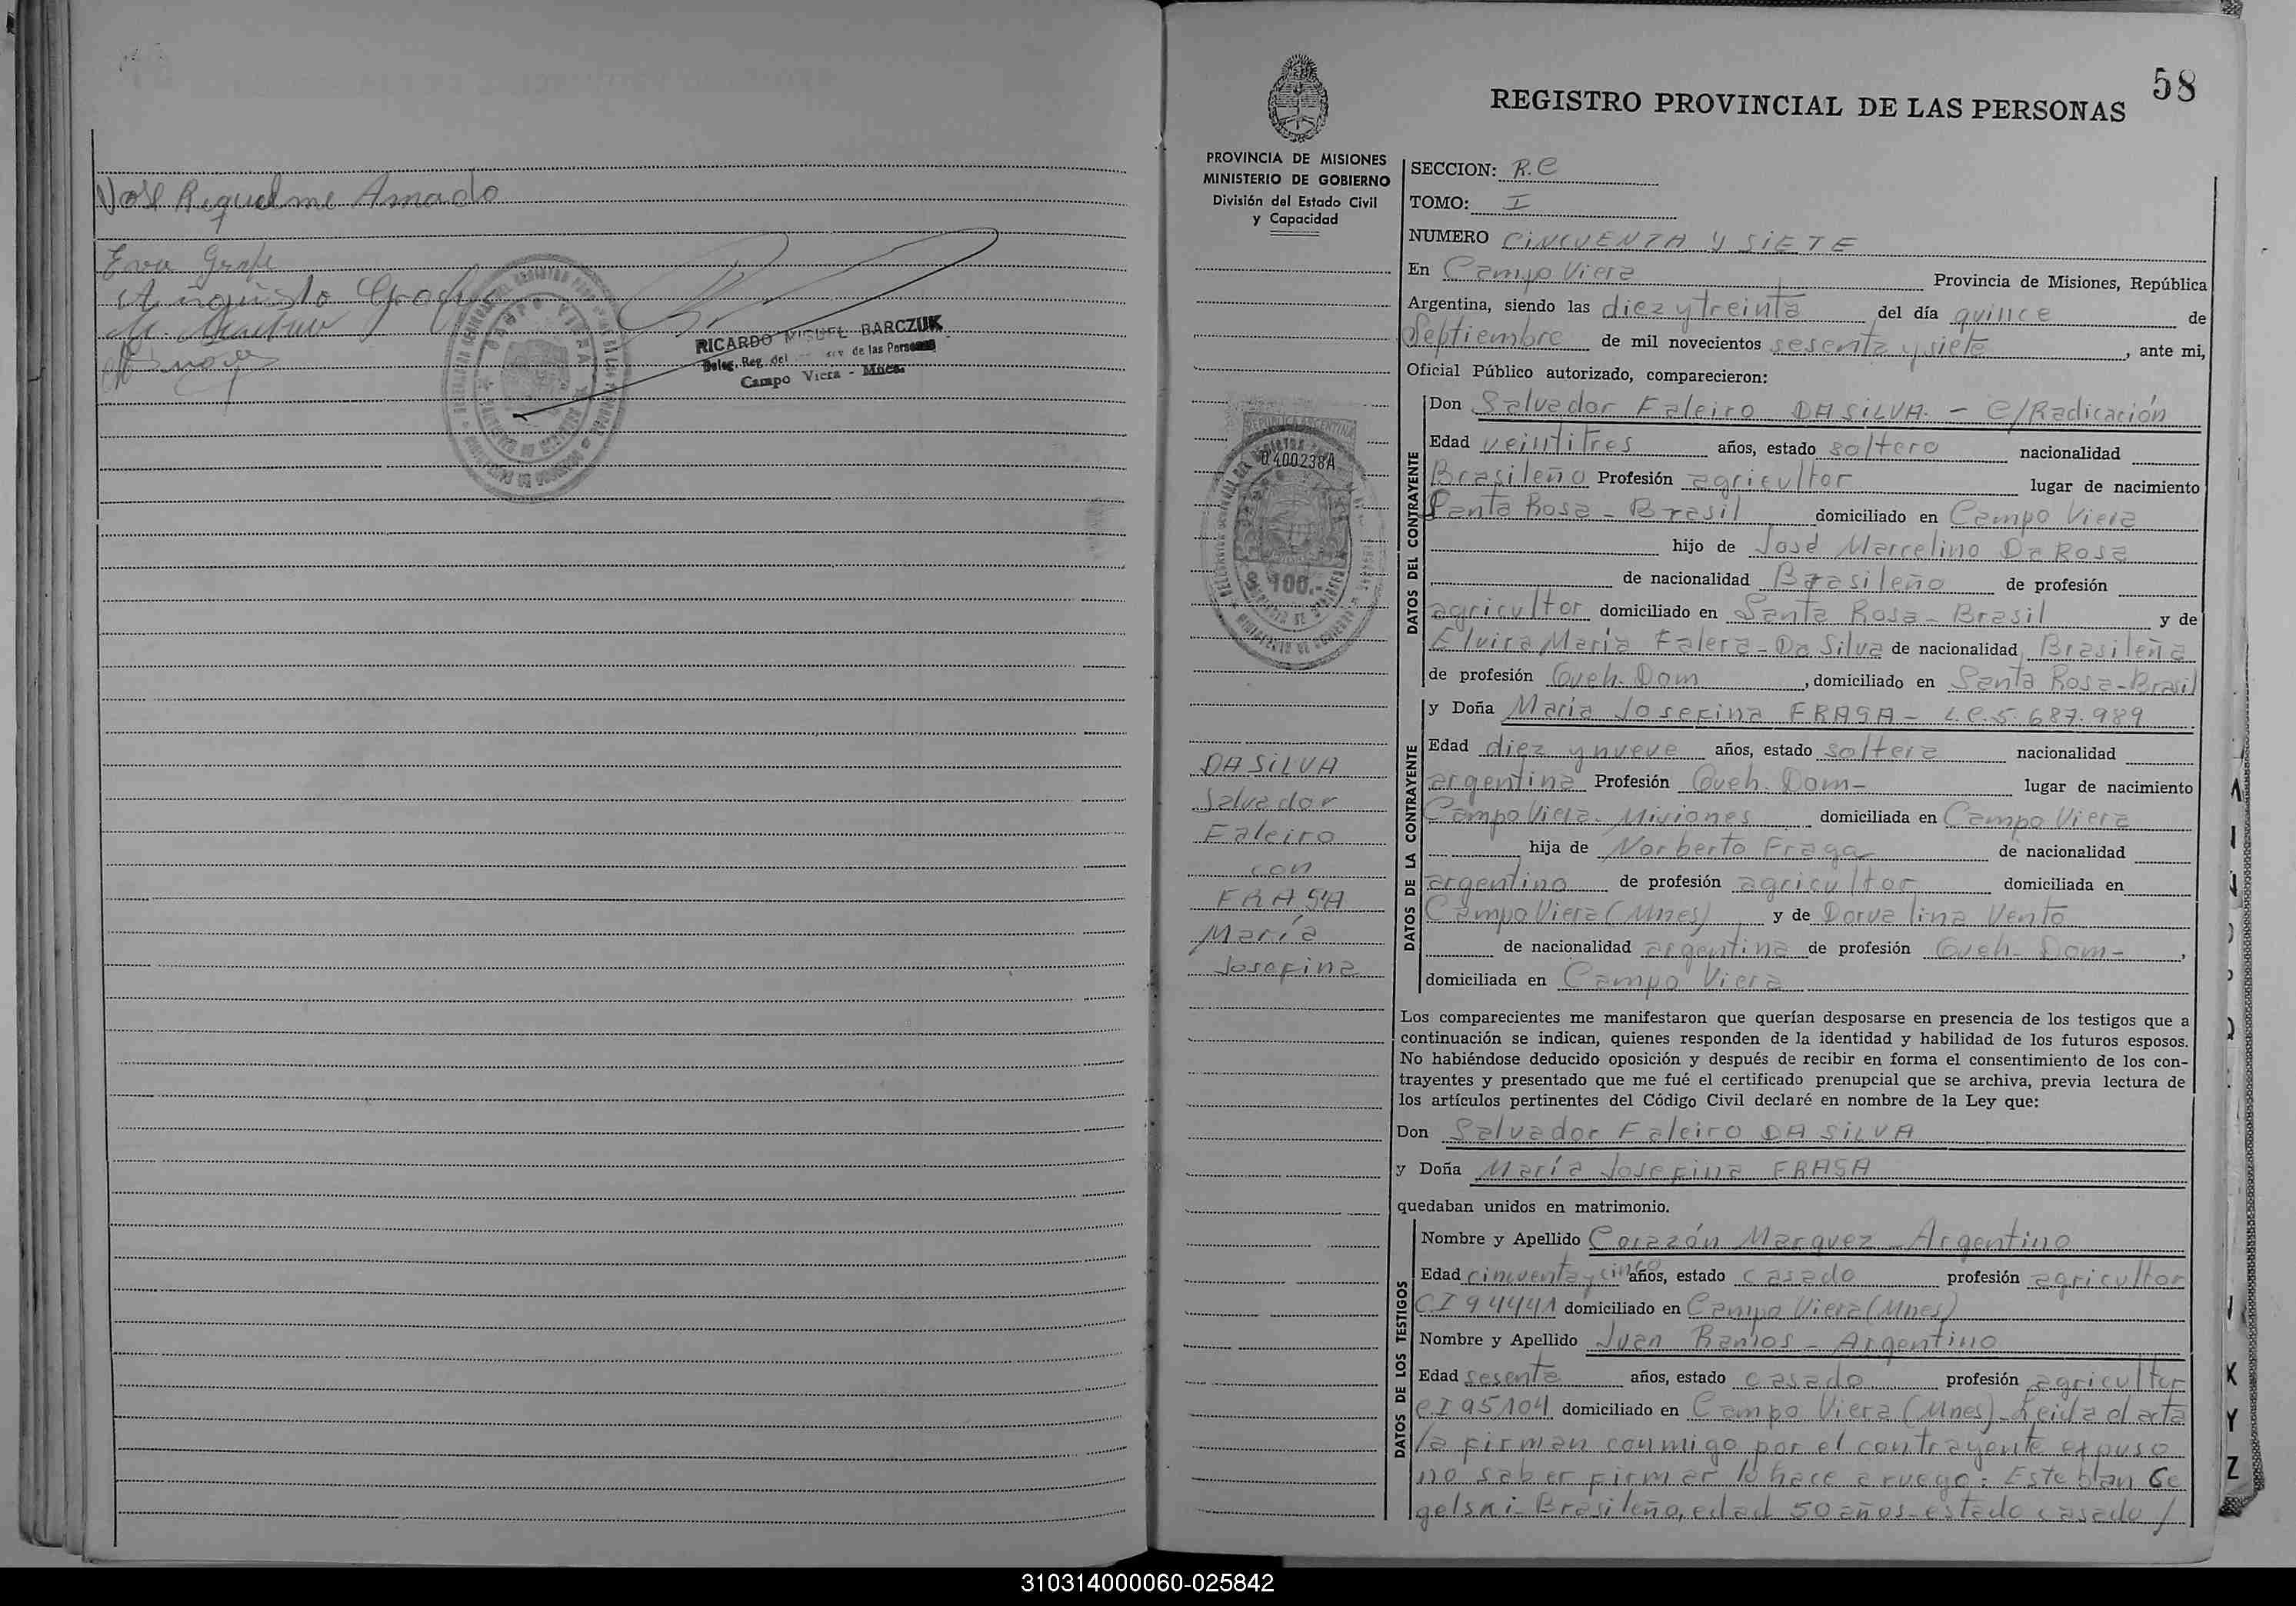 José Riquelme Amado
Eva Grafe
Augusto
RICARDO MIGUEL BARCZUK
Deleg. Reg. del de las Personas
Campo Viera - Mnes.
CAMPO VIERA
58
REGISTRO PROVINCIAL DE LAS PERSONAS
PROVINCIA DE MISIONES
MINISTERIO DE GOBIERNO
División del Estado Civil
y Capacidad
REPUBLICA ARGENTINA
0400238A
$ 100.-
DA SiLVA
Salvador
Faleiro
con
FRAGA
María
Josefina
SECCION: R.C
TOMO: I
NUMERO CiNCUENTA y SiETE
En Campo Viera Provincia de Misiones, República
Argentina, siendo las diez y treinta del día quince de
Septiembre de mil novecientos sesenta y siete, ante mi,
Oficial Público autorizado, comparecieron:
DATOS DEL CONTRAYENTE
Don Salvador Faleiro DA SiLVA - C/Radicación
Edad veintitres años, estado soltero nacionalidad
Brasileño Profesión agricultor lugar de nacimiento
Santa Rosa - Brasil domiciliado en Campo Viera
hijo de José Marcelino Da Rosa
de nacionalidad Brasileño de profesión
agricultor domiciliado en Santa Rosa - Brasil y de
Elvira María Falera - Da Silva de nacionalidad Brasileña
de profesión Queh. Dom, domiciliado en Santa Rosa - Brasil
DATOS DE LA CONTRAYENTE
y Doña María Josefina FRAGA - L.C. 5.687.989
Edad diez y nueve años, estado soltera nacionalidad
argentina Profesión Queh. Dom - lugar de nacimiento
Campo Viera - Misiones domiciliada en Campo Viera
hija de Norberto Fraga de nacionalidad
argentino de profesión agricultor domiciliada en
Campo Viera (Mnes) y de Dorvalina Vento
de nacionalidad argentina de profesión Queh - Dom -,
domiciliada en Campo Viera
Los comparecientes me manifestaron que querían desposarse en presencia de los testigos que a
continuación se indican, quienes responden de la identidad y habilidad de los futuros esposos.
No habiéndose deducido oposición y después de recibir en forma el consentimiento de los con-
trayentes y presentado que me fué el certificado prenupcial que se archiva, previa lectura de
los artículos pertinentes del Código Civil declaré en nombre de la Ley que:
Don Salvador Faleiro DA SiLVA
y Doña María Josefina FRAGA
quedaban unidos en matrimonio.
DATOS DE LOS TESTIGOS
Nombre y Apellido Corazón Marquez - Argentino
Edad cincuenta y cinco años, estado casado profesión agricultor
C.I 94441 domiciliado en Campo Viera (Mnes)
Nombre y Apellido Juan Ramos - Argentino
Edad sesenta años, estado casado profesión agricultor
C.I 95104 domiciliado en Campo Viera (Mnes) - Leida el acta
la firman conmigo por el contrayente expuso
no saber firmar lo hace a ruego: Esteban Ge
gelski - Brasileño, edad 50 años - estado casado /
K
Y
Z
310314000060-025842